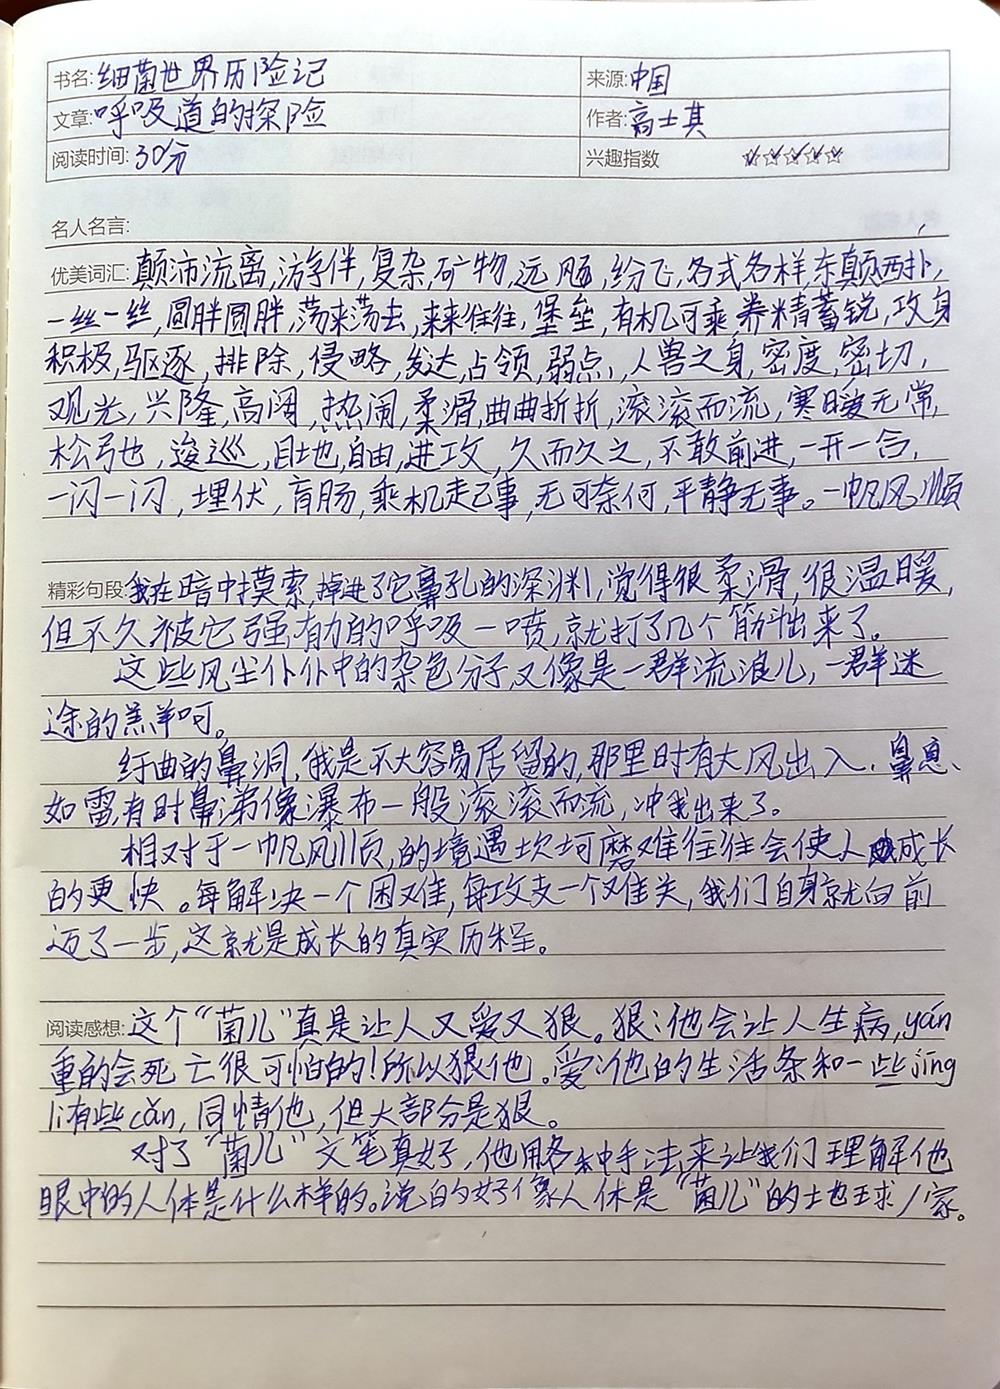 书名:细菌世界历险记 来源:中国
文章:呼吸道的探险 作者:高士其
阅读时间:30分 兴趣指数 ☆☆☆☆☆
名人名言:
优美词汇:颠沛流离,游伴,复杂,矿物,远飏,纷飞,各式各样,东颠西扑,
一丝一丝,圆胖圆胖,荡来荡去,来来往往,堡垒,有机可乘,养精蓄锐,攻身
积极,驱逐,排除,侵略,发达,占领,弱点,人兽之身,密度,密切,
观光,兴隆,高阔,热闹,柔滑,曲曲折折,滚滚而流,寒暖无常,
松弛,逡巡,自由,进攻,久而久之,不敢前进,一开一合,
一闪一闪,埋伏,盲肠,乘机走己事,无可奈何,平静无事。一帆风顺
精彩句段:我在暗中摸索,掉进了它鼻孔的深渊,觉得很柔滑,很温暖,
但不久被它强有力的呼吸一喷,就打了几个筋斗出来了。
这些风尘仆仆中的杂色分子,又像是一群流浪儿,一群迷
途的羔羊呵。
纡曲的鼻洞,我是不大容易居留的,那里时有大风出入,鼻息
如雷,有时鼻涕像瀑布一般滚滚而流,冲我出来了。
相对于一帆风顺,的境遇坎坷磨难往往会使人成长
的更快。每解决一个困难,每攻支一个难关,我们自身就向前
迈了一步,这就是成长的真实历程。
阅读感想:这个“菌儿”真是让人又爱又狠。狠:他会让人生病,yán
重的会死亡很可怕的!所以狠他。爱:他的生活条和一些jīng
lì有些cǎn,同情他,但大部分是狠。
对了“菌儿”文笔真好,他用各种手法,来让我们理解他
眼中的人体是什么样的。说的好像人体是“菌儿”的地球/家。